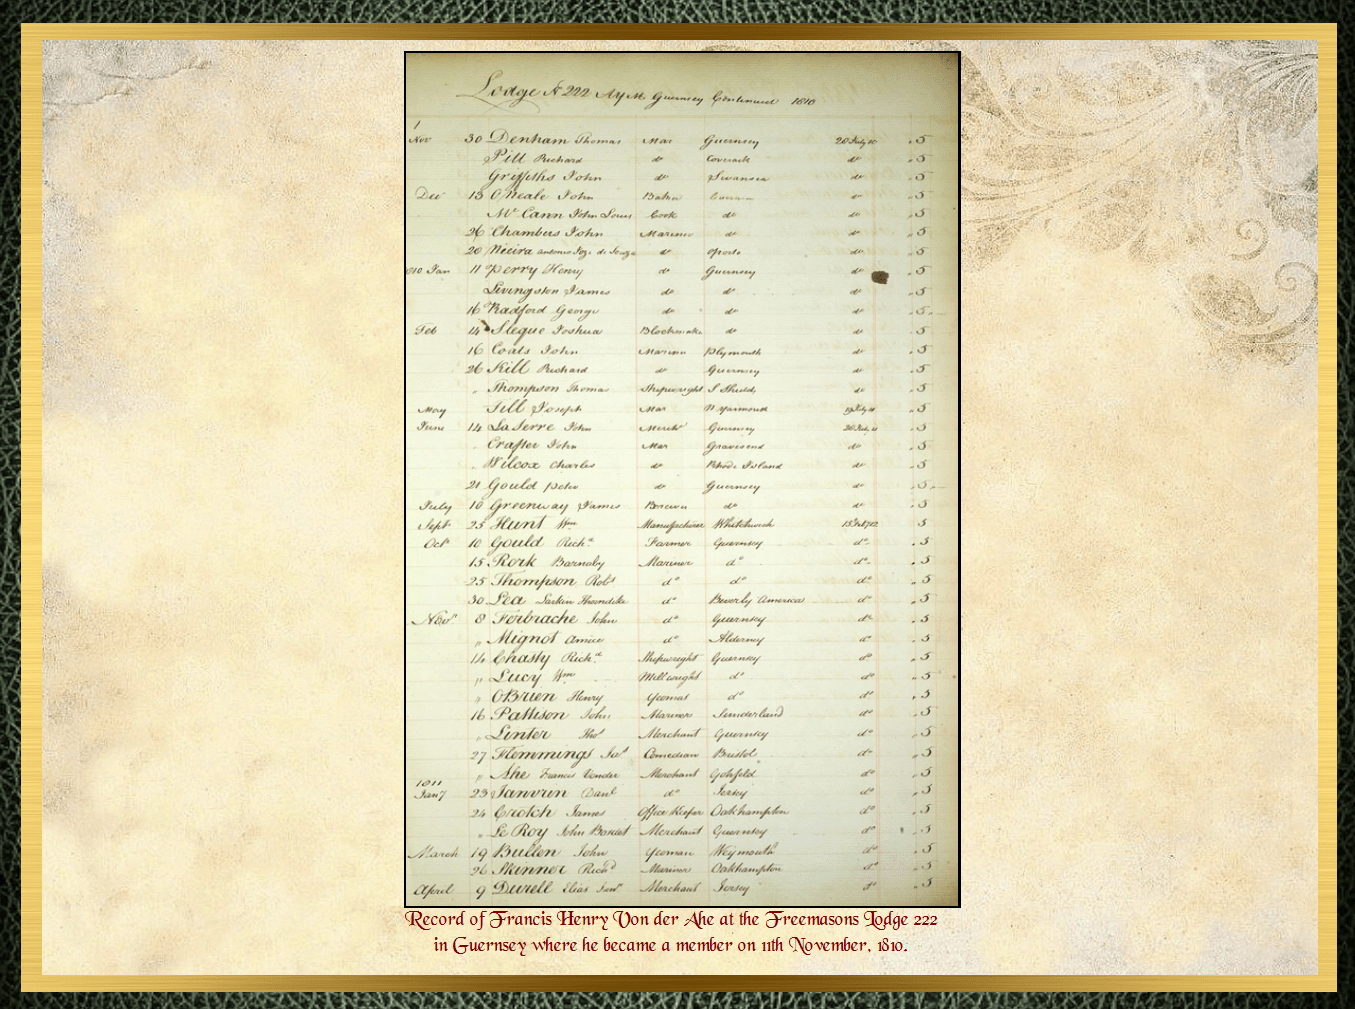 Lodge No 222 Guernsey Continued 1810
1
Nov 30 Denham Thomas Mar Guernsey 20 July 10 " 5
Pill Richard do Coverack do " 5
Griffiths John do Swansea do " 5
Dec 13 O'Neale John do " 5
Mc Cann John Louis Cook do do " 5
26 Chambers John Mariner do do " 5
20 Antonio Joze de Souza do Oporto do " 5
1810 Jan 11 Perry Henry do Guernsey do " 5
Livingston James do do do " 5
16 Radford George do do do " 5
Feb 14 Slegue Joshua Blockmaker do do " 5
16 Coats John Mariner Plymouth do " 5
26 Kill Richard do Guernsey do " 5
" Thompson Thomas Shipwright S Shields do " 5
May Till Joseph Mar N Yarmouth " 5
June 14 La Serre John Mercht Guernsey " 5
" Crafter John Mar Gravesend do " 5
" Wilcox Charles do Rhode Island do " 5
21 Gould Peter do Guernsey do " 5
July 10 Greenway James do do " 5
Sept 25 Hunt Wm Manufacturer Whitchurch 5
Octr 10 Gould Richd Farmer Guernsey do " 5
15 Rork Barnaby Mariner do do " 5
25 Thompson Robt do do do " 5
30 Lea Larkin Thorndike do Beverly America do " 5
Novr 8 Ferbrache John do Guernsey do " 5
" Mignot Amice do Alderney do " 5
14 Chasty Richd Shipwright Guernsey do " 5
" Lucy Wm Millwright do do " 5
" OBrien Henry Yeoman do do " 5
16 Pattison John Mariner Sunderland do " 5
" Linter Thos Merchant Guernsey do " 5
27 Flemmings Jas Comedian Bristol do " 5
" Ahe Francis Vonder Merchant Gohfeld do " 5
1811
Jany 23 Janvrin Danl do Jersey do " 5
24 Crotch James Office Keeper Oakhampton do " 5
" Le Roy John Basset Merchant Guernsey do " 5
March 19 Bullen John Yeoman Weymouth do " 5
26 Skinner Richd Mariner Oakhampton do " 5
April 9 Durell Elias Junr Merchant Jersey do " 5
Record of Francis Henry Von der Ahe at the Freemasons Lodge 222
in Guernsey where he became a member on 11th November, 1810.